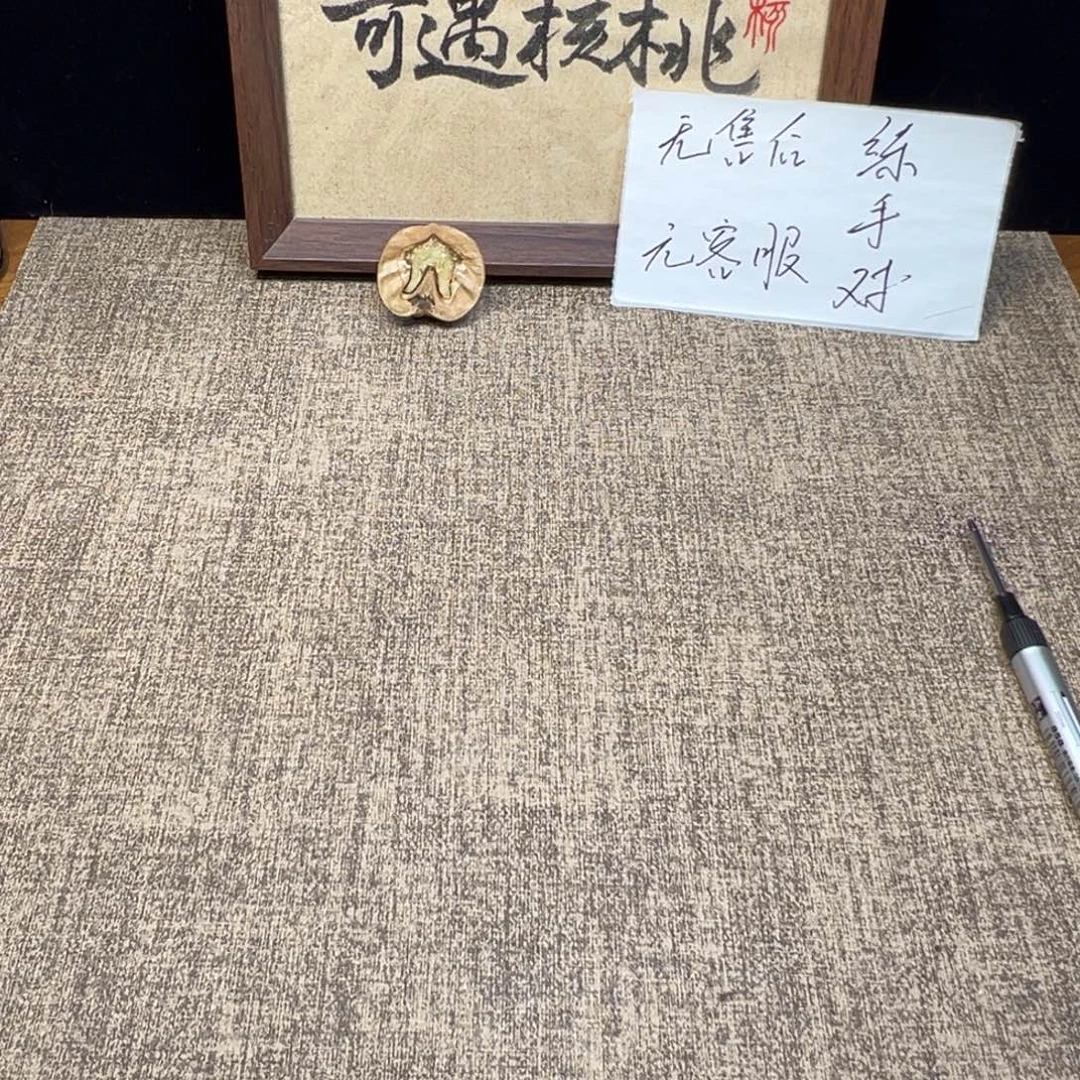 奇遇核桃
无售后
无客服
练手对